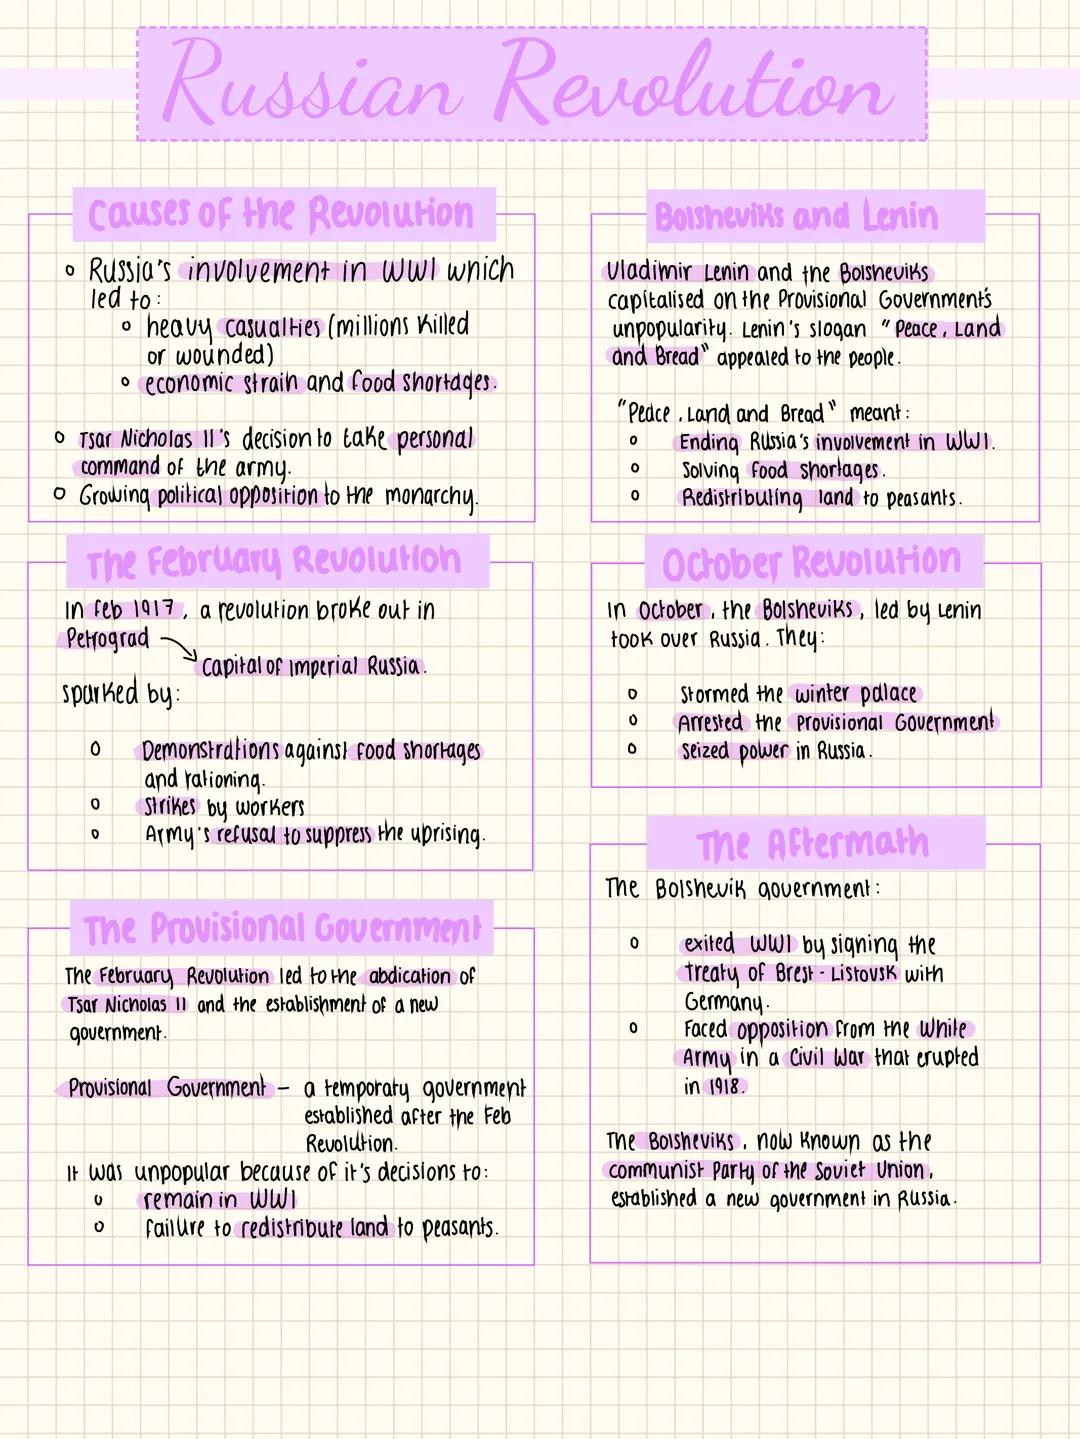 Russian Revolution
Causes of the Revolution
Russia's involvement in WWI which
led to:
heavy casualties (millions killed
or wounded)
economic strain and food shortages.
Tsar Nicholas II's decision to take personal
command of the army.
Growing political opposition to the monarchy.
The February Revolution
In Feb 1917, a revolution broke out in
Petrograd
Capital of Imperial Russia.
sparked by:
Demonstrations against food shortages
and rationing.
Strikes by workers
Army's refusal to suppress the uprising.
The Provisional Government
The February Revolution led to the abdication of
Tsar Nicholas II and the establishment of a new
government.
Provisional Government - a temporary government
established after the Feb
Revolution.
It was unpopular because of it's decisions to:
remain in WWI
failure to redistribute land to peasants.
Bolsheviks and Lenin
Vladimir Lenin and the Bolsheviks
capitalised on the Provisional Government's
unpopularity. Lenin's slogan "Peace, Land
and Bread" appealed to the people.
"Peace, Land and Bread" meant:
Ending Russia's involvement in WWI.
Solving food shortages.
Redistributing land to peasants.
October Revolution
In October, the Bolsheviks, led by Lenin
took over Russia. They:
Stormed the winter palace
Arrested the Provisional Government
Seized power in Russia.
The Aftermath
The Bolshevik government:
exited WWI by signing the
Treaty of Brest-Listovsk with
Germany.
Faced opposition from the White
Army in a Civil War that erupted
in 1918.
The Bolsheviks, now known as the
communist Party of the Soviet Union,
established a new government in Russia.